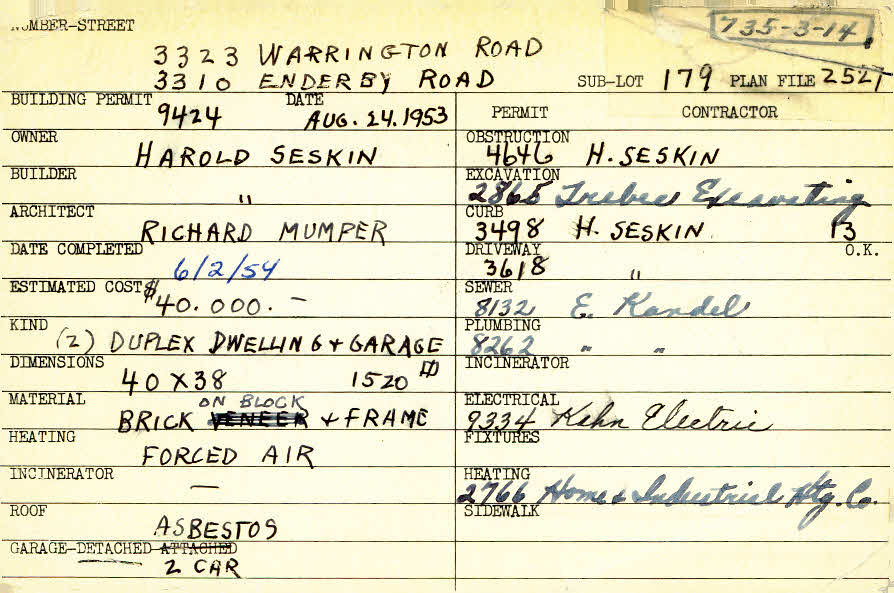 NUMBER-STREET
735-3-14
3323 WARRINGTON ROAD
3310 ENDERBY ROAD
SUB-LOT 179 PLAN FILE 2521
BUILDING PERMIT 9424 DATE AUG. 24. 1953
OWNER HAROLD SESKIN
BUILDER "
ARCHITECT RICHARD MUMPER
DATE COMPLETED 6/2/54
ESTIMATED COST $40.000.—
KIND (2) DUPLEX DWELLING & GARAGE
DIMENSIONS 40 X 38 1520
MATERIAL BRICK ON BLOCK VENEER & FRAME
HEATING FORCED AIR
INCINERATOR —
ROOF ASBESTOS
GARAGE-DETACHED ATTACHED
2 CAR
PERMIT CONTRACTOR
OBSTRUCTION 4646 H. SESKIN
EXCAVATION 2865 Excavating
CURB 3498 H. SESKIN 13
DRIVEWAY 3618 " O.K.
SEWER 8132 E. Kandel
PLUMBING 8262 " "
INCINERATOR
ELECTRICAL 9334 Kahn Electric
FIXTURES
HEATING 2766 Home & Industrial Htg. Co.
SIDEWALK